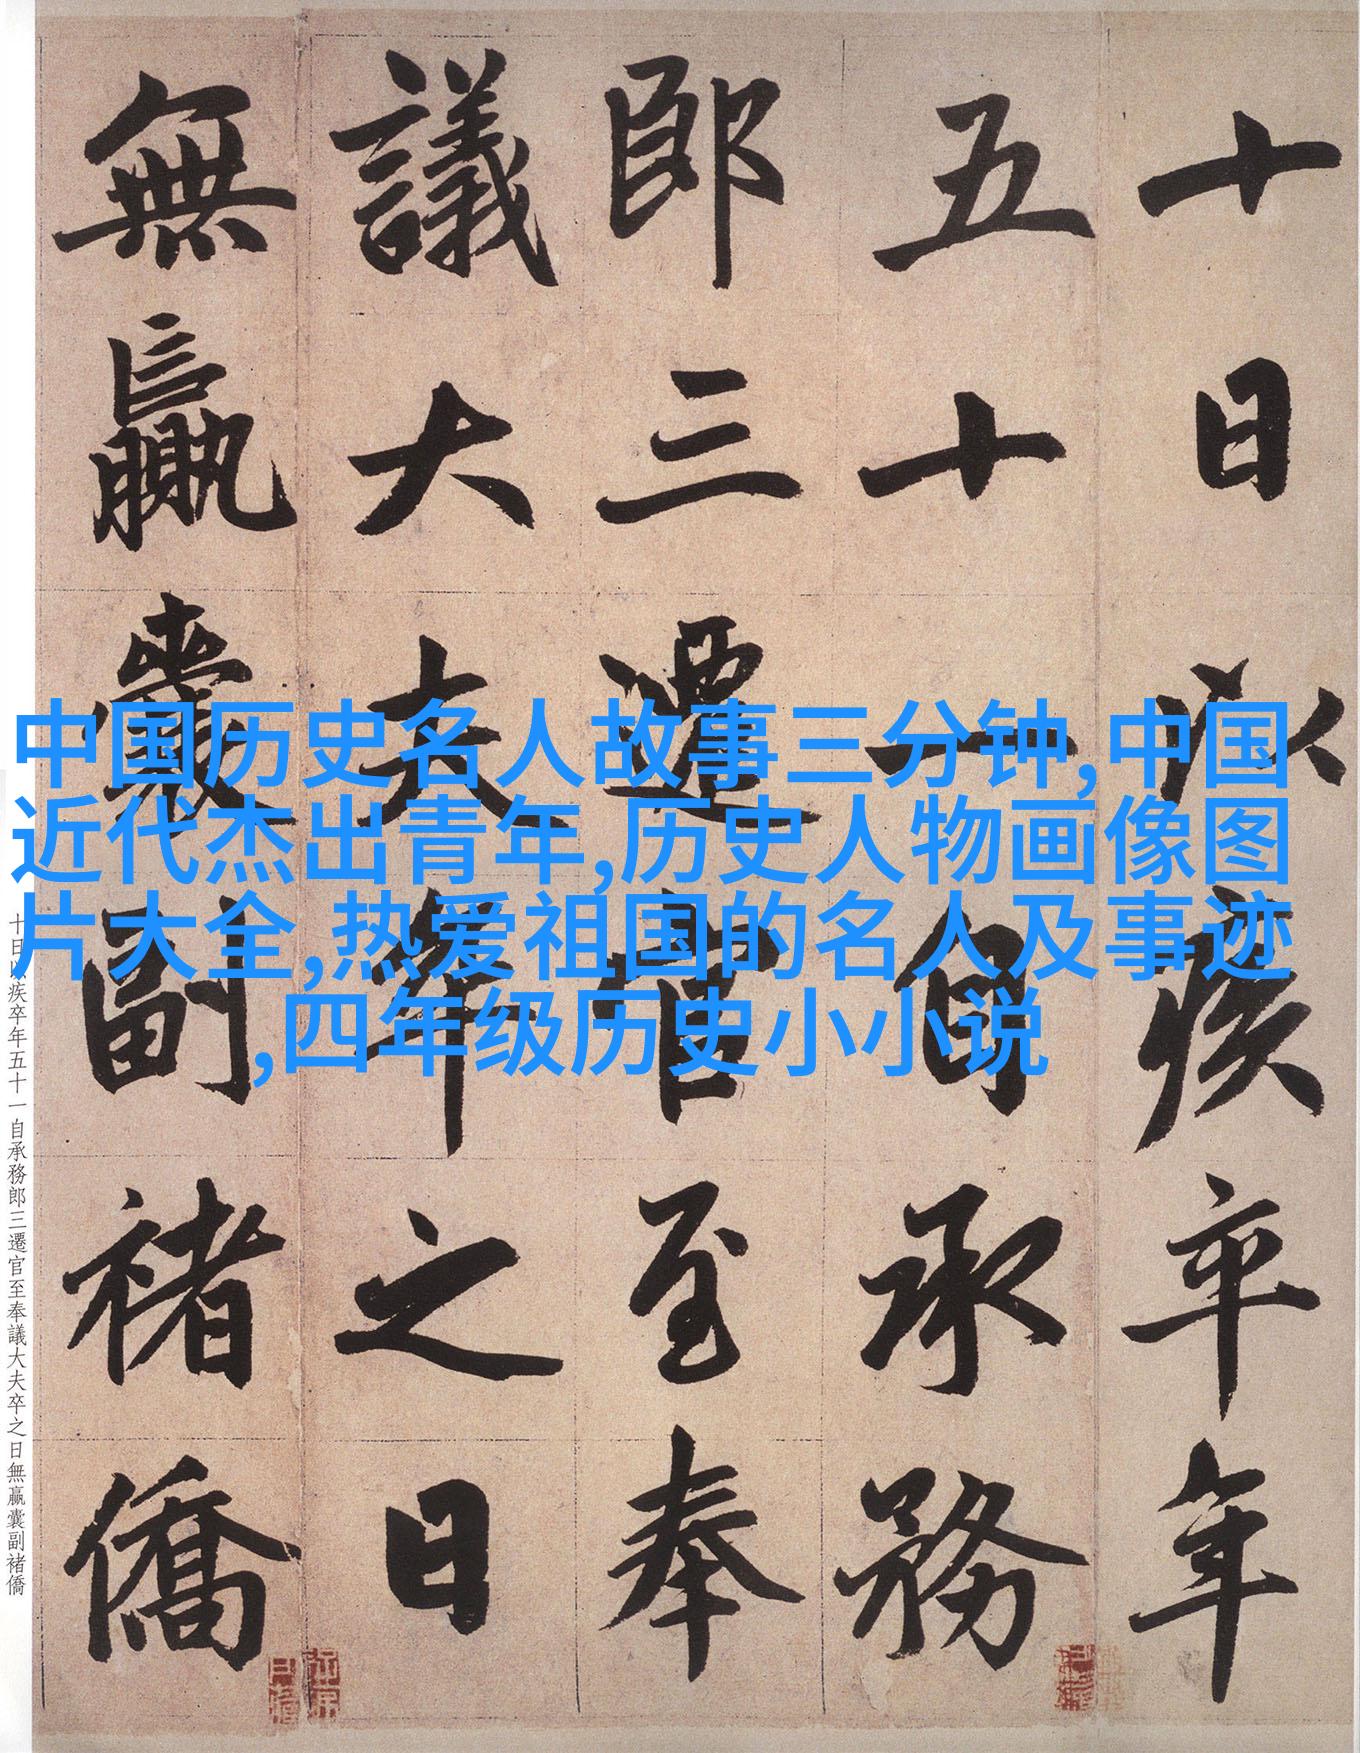 十日以疾卒年
五十一自承務
郎三遷官至奉
議大夫卒之日
無贏囊副褚僑
中国历史名人故事三分钟,中国
近代杰出青年,历史人物画像图
片大全,热爱祖国的名人及事迹
,四年级历史小小说
十日以疾卒年五十一自承務郎三遷官至奉議大夫卒之日無贏囊副褚僑